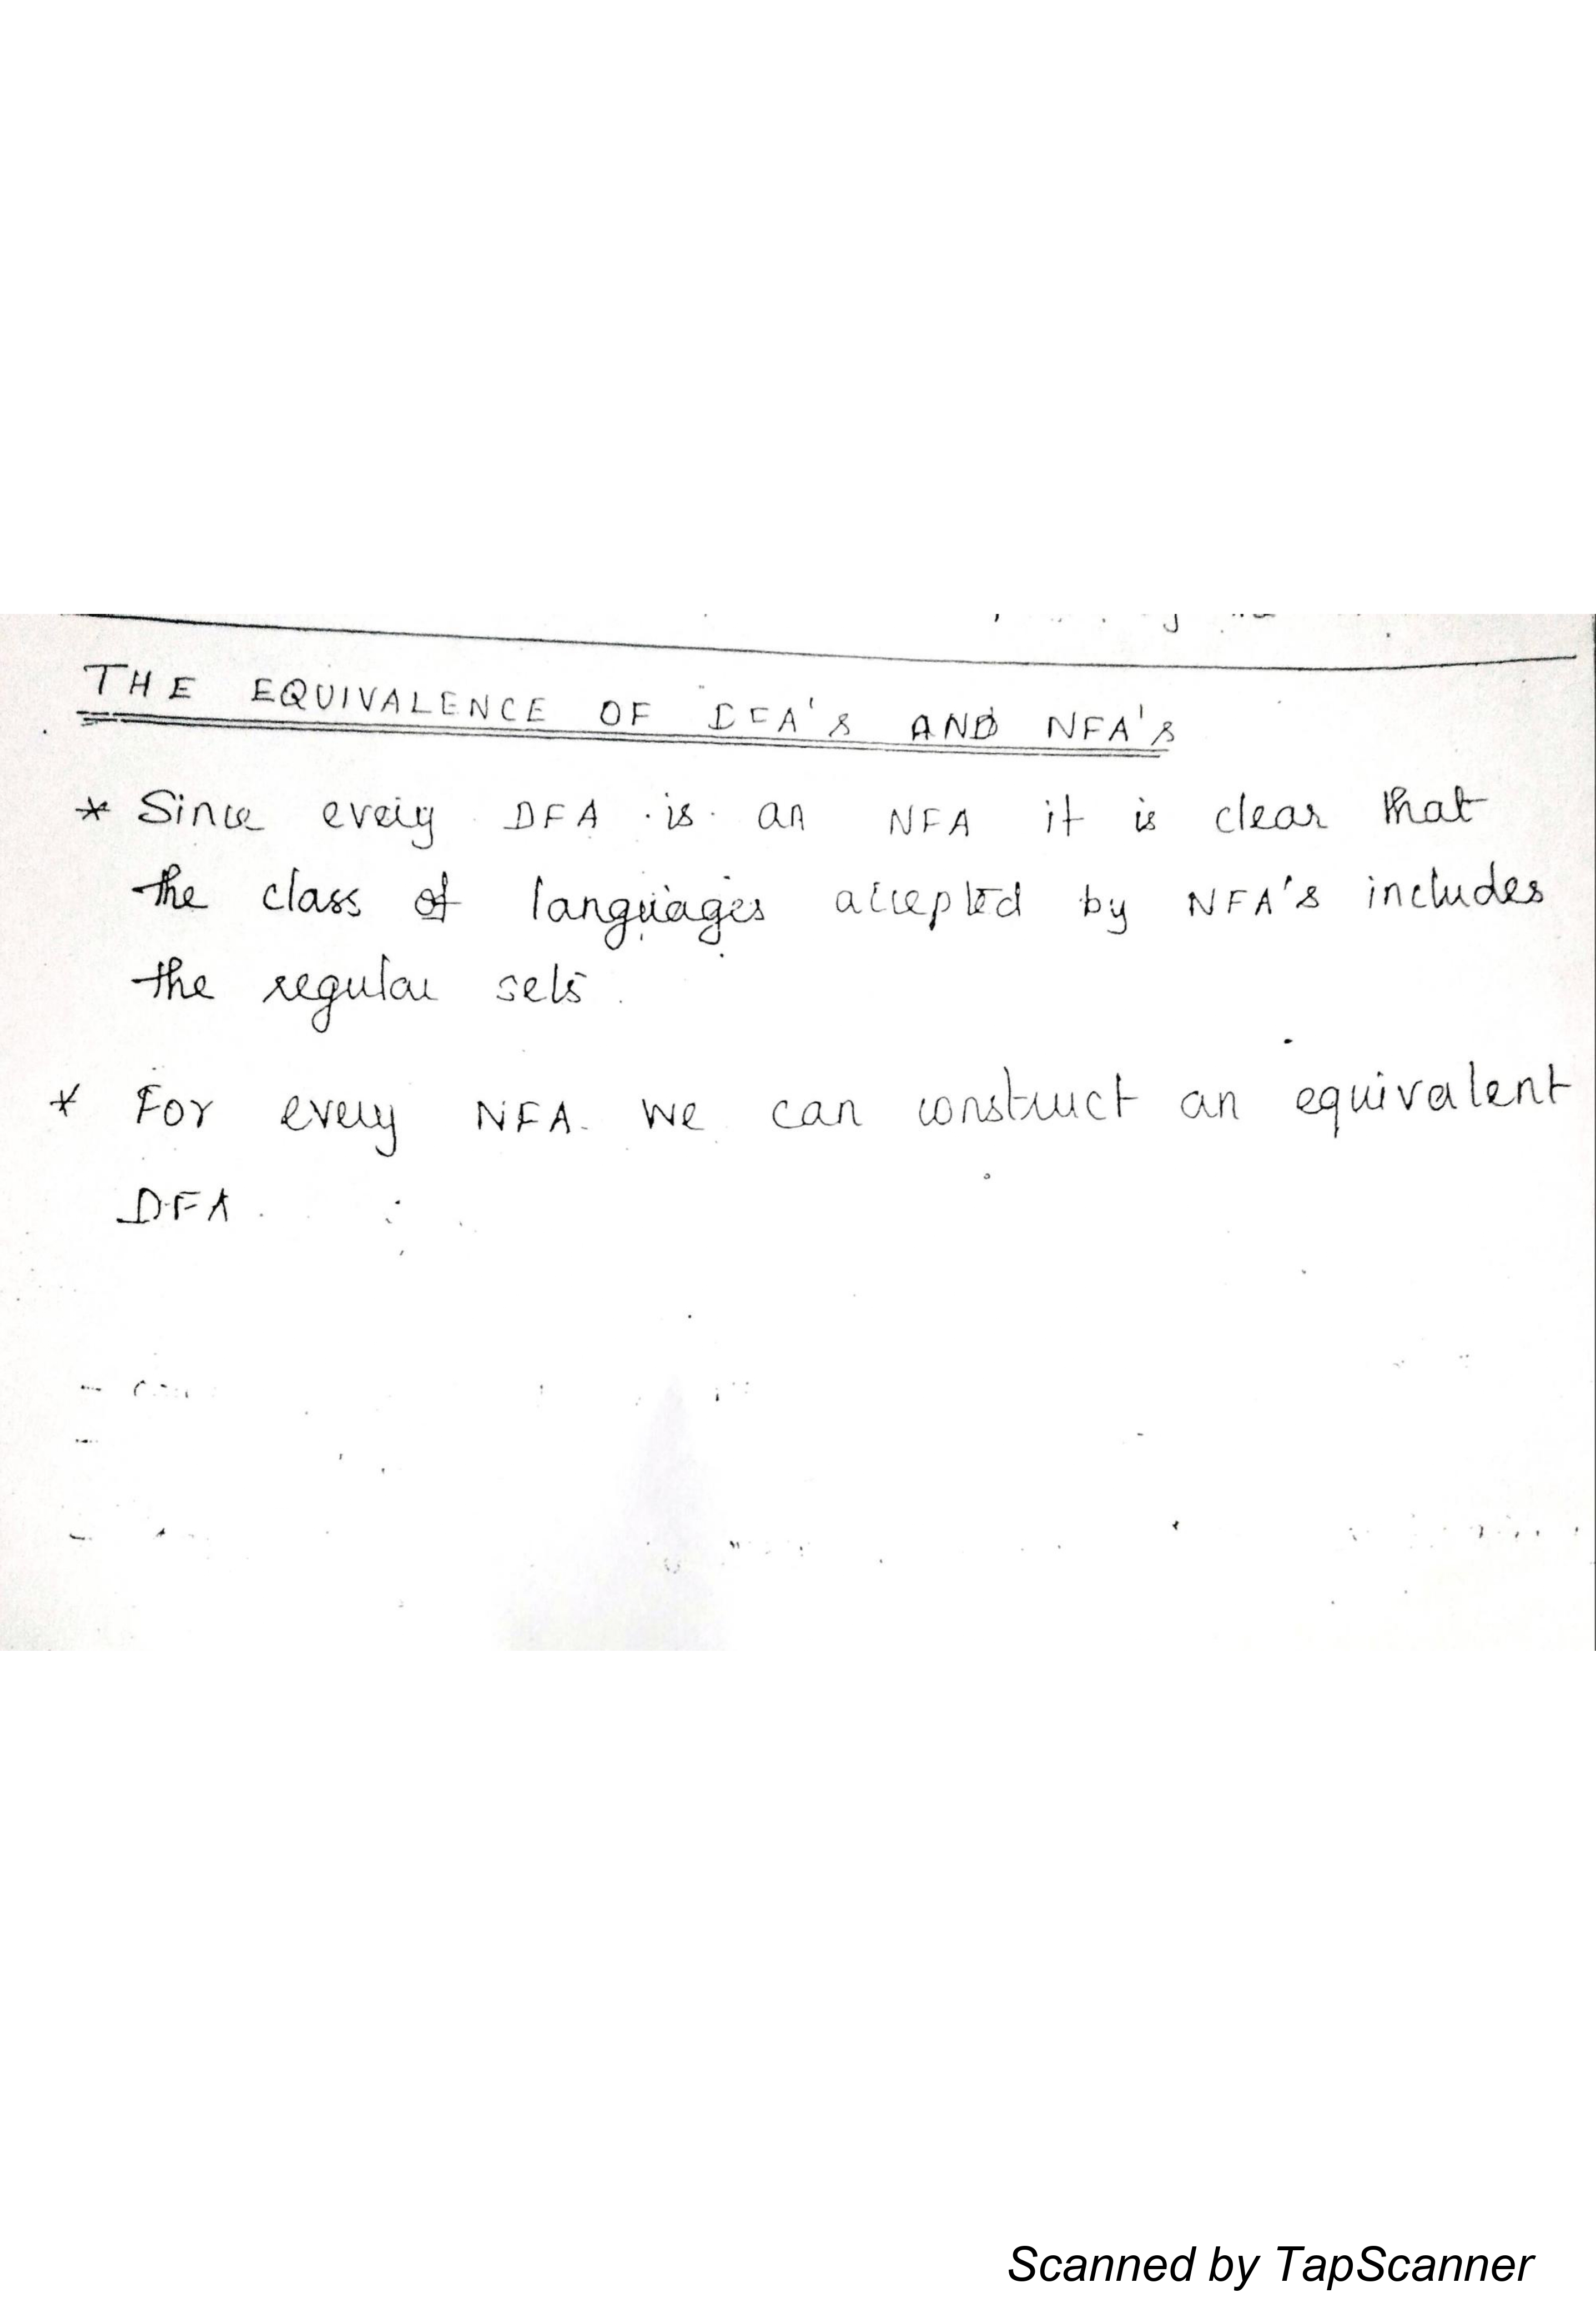 THE EQUIVALENCE OF DFA's AND NFA's
* Since every DFA is an NFA it is clear that
the class of languages accepted by NFA's includes
the regular sets.
* For every NFA we can construct an equivalent
DFA.
Scanned by TapScanner